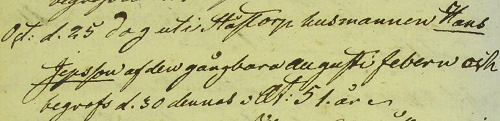 Oct: d. 25 dog uti Håstorp husmannen Hans
Jepsson af den gångbara augusti febern och
begrofs d. 30 dennes. Æt: 51. år